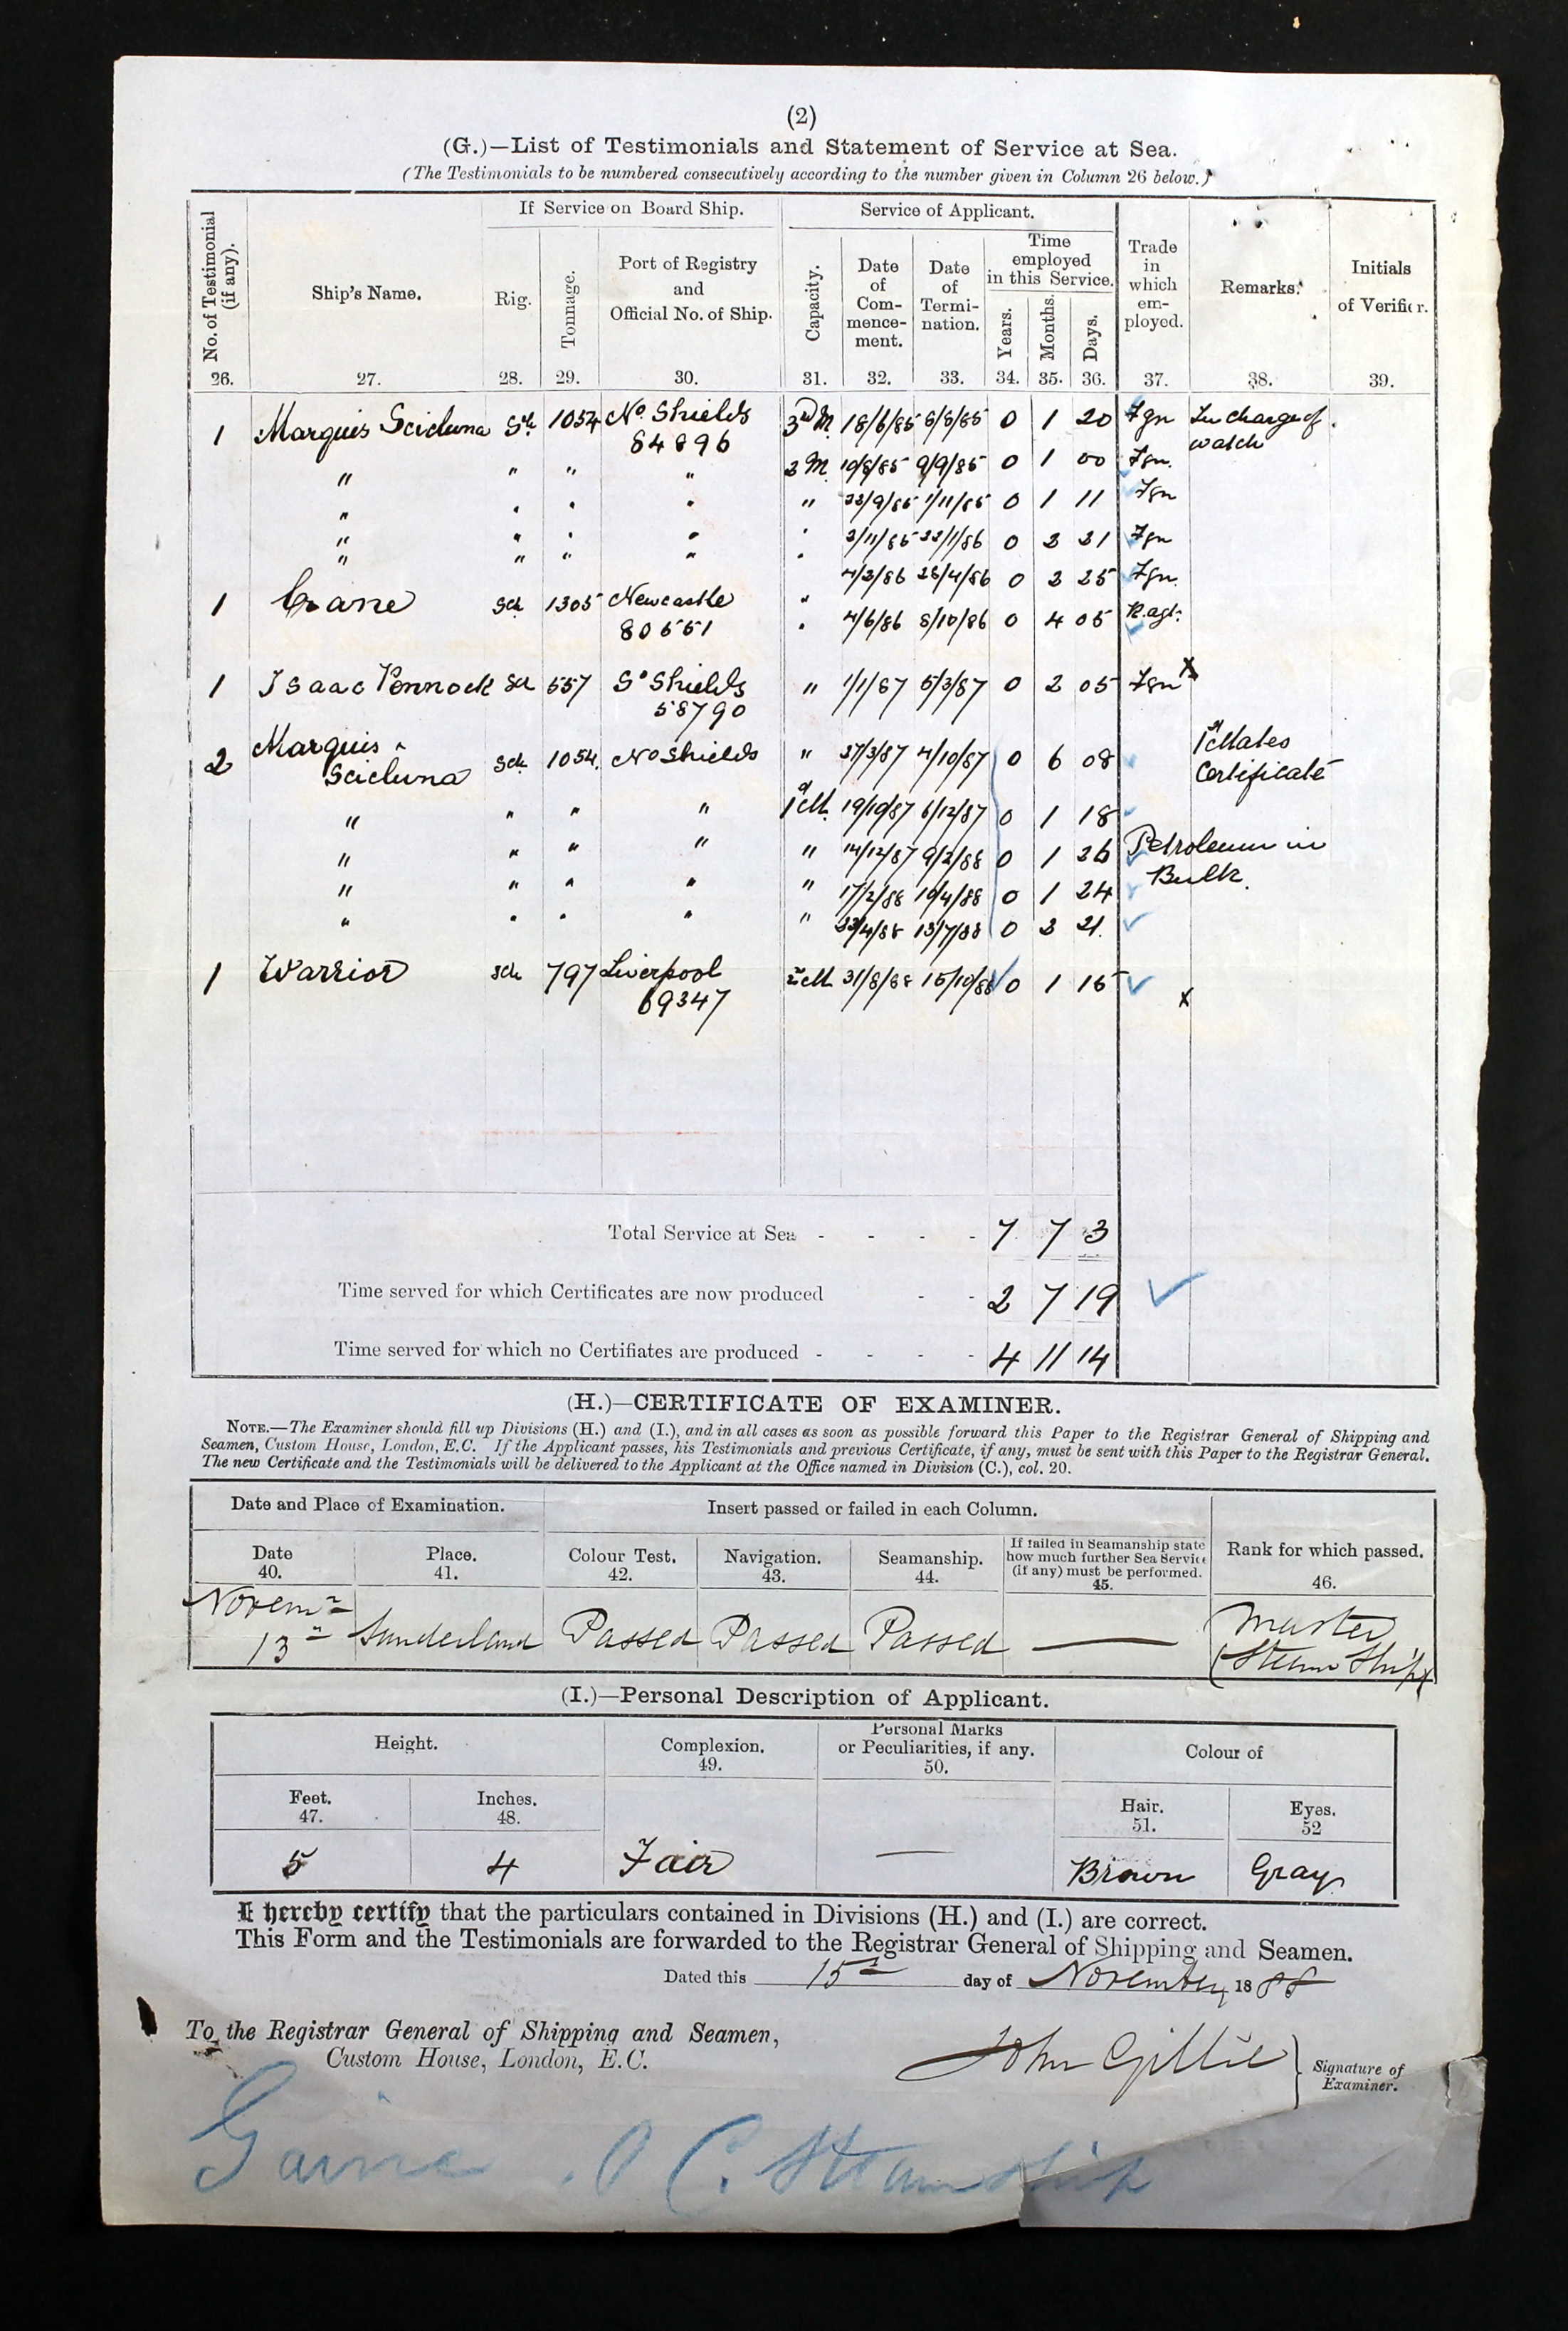 (2)
(G.)—List of Testimonials and Statement of Service at Sea.
(The Testimonials to be numbered consecutively according to the number given in Column 26 below.)
No. of Testimonial (if any). 26.
Ship's Name. 27.
If Service on Board Ship.
Rig. 28.
Tonnage. 29.
Port of Registry and Official No. of Ship. 30.
Service of Applicant.
Capacity. 31.
Date of Com-mence-ment. 32.
Date of Termi-nation. 33.
Time employed in this Service.
Years. 34.
Months. 35.
Days. 36.
Trade in which em-ployed. 37.
Remarks. 38.
Initials of Verifier. 39.
1 Marquis Scicluna Scr 1054 No Shields 3rd M. 18/6/85 6/8/85 0 1 20 Fgn In charge of
84896 watch
" " " " 2 M. 10/8/85 9/9/85 0 1 00 Fgn.
" " " " " 22/9/85 1/11/85 0 1 11 Fgn
" " " " " 2/11/85 22/1/86 0 2 21 Fgn
" " " " " 4/2/86 28/4/86 0 2 25 Fgn.
1 Crane Scr 1305 Newcastle " 4/6/86 8/10/86 0 4 05 R. agt.
80551
1 Isaac Pennock Scr 557 So Shields " 1/1/87 5/3/87 0 2 05 Fgn x
58790
2 Marquis Scicluna Scr 1054. No Shields " 27/3/87 4/10/87 0 6 08 1st Mates Certificate
" " " " 1st M. 19/10/87 6/12/87 0 1 18
" " " " " 14/12/87 9/2/88 0 1 26 Petroleum in
" " " " " 17/2/88 10/4/88 0 1 24 Bulk.
" " " " " 23/4/88 13/7/88 0 2 21.
1 Warrior Scr 797 Liverpool 2nd M 31/8/88 15/10/88 0 1 15 x
69347
Total Service at Sea - - - - 7 7 3
Time served for which Certificates are now produced - - 2 7 19
Time served for which no Certifiates are produced - - - - 4 11 14
(H.)—CERTIFICATE OF EXAMINER.
NOTE.—The Examiner should fill up Divisions (H.) and (I.), and in all cases as soon as possible forward this Paper to the Registrar General of Shipping and
Seamen, Custom House, London, E.C. If the Applicant passes, his Testimonials and previous Certificate, if any, must be sent with this Paper to the Registrar General.
The new Certificate and the Testimonials will be delivered to the Applicant at the Office named in Division (C.), col. 20.
Date and Place of Examination.
Insert passed or failed in each Column.
Date 40.
Place. 41.
Colour Test. 42.
Navigation. 43.
Seamanship. 44.
If failed in Seamanship state how much further Sea Service (if any) must be performed. 45.
Rank for which passed. 46.
Novemr
13th Sunderland Passed Passed Passed — Master
(Steam Ship)
(I.)—Personal Description of Applicant.
Height.
Complexion. 49.
Personal Marks or Peculiarities, if any. 50.
Colour of
Feet. 47.
Inches. 48.
Hair. 51.
Eyes. 52
5 4 Fair — Brown Gray
I hereby certify that the particulars contained in Divisions (H.) and (I.) are correct.
This Form and the Testimonials are forwarded to the Registrar General of Shipping and Seamen.
Dated this 15th day of November 1888
To the Registrar General of Shipping and Seamen,
Custom House, London, E.C.
John Gillie
Signature of Examiner.
C. Steamship